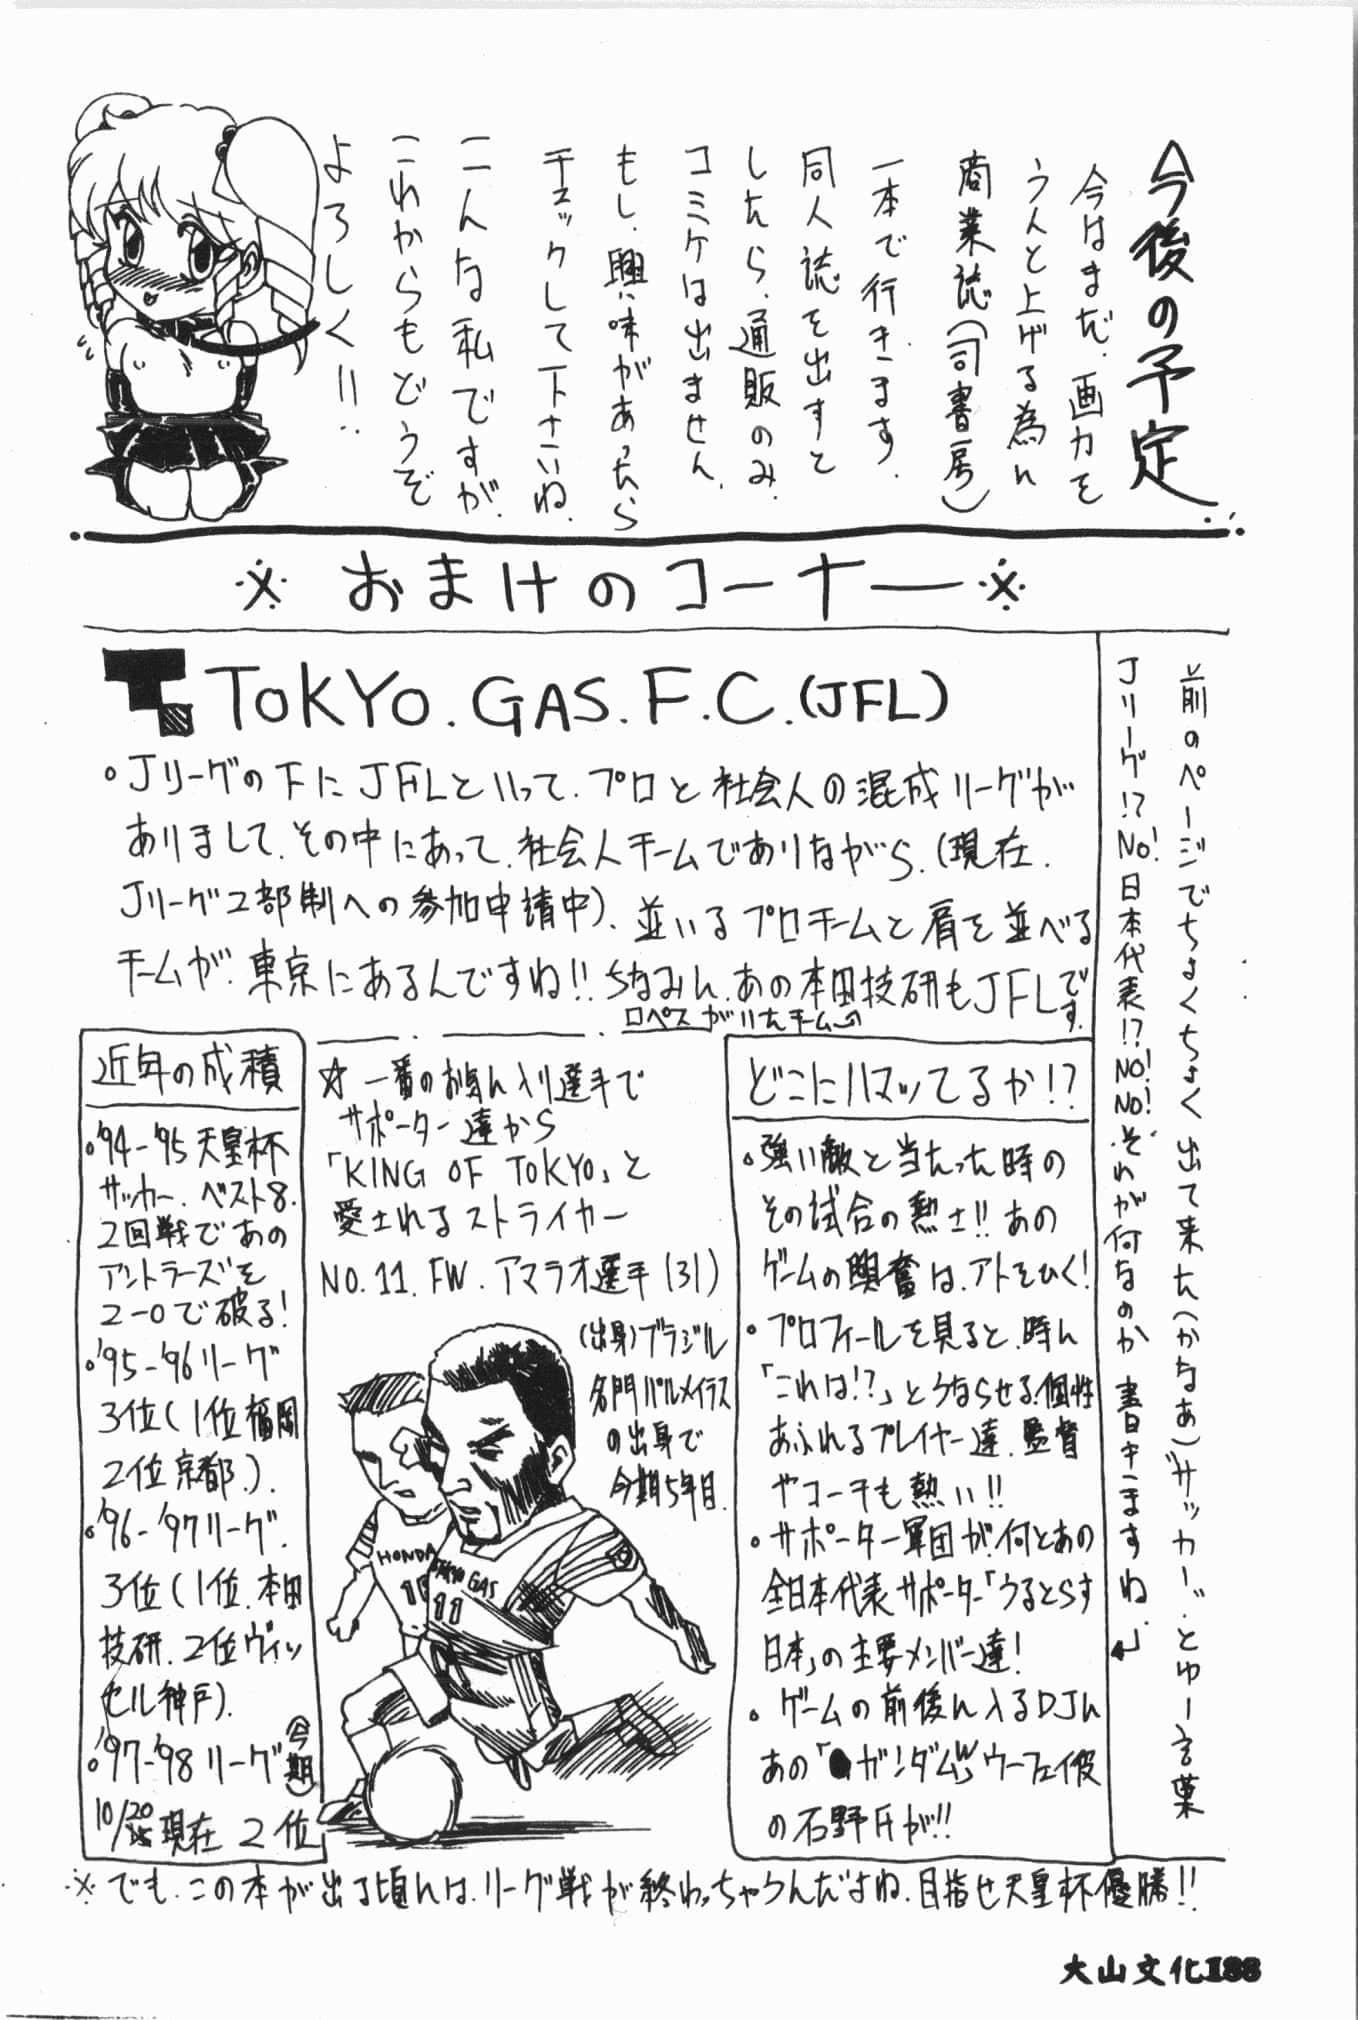 今後の予定
今はまだ、画力を
うんと上げる為に
商業誌(司書房)
一本で行きます。
同人誌を出すと
したら、通販のみ。
コミケは出ません。
もし、興味があったら
チェックして下さいね。
こんな私ですが、
これからもどうぞ
よろしく!!
※おまけのコーナー※
前のページでちょくちょく出て来た(かなぁ)"サッカー"。とゆー言葉
Jリーグ!?NO!日本代表!?NO!NO!それが何なのか書きますね。
TOKYO.GAS.F.C.(JFL)
○Jリーグの下にJFLといって、プロと社会人の混成リーグが
ありまして、その中にあって、社会人チームでありながら、(現在、
Jリーグ2部制への参加申請中)、並いるプロチームと肩を並べる
チームが、東京にあるんですね!!ちなみに、あの本田技研もJFLです。
ロペスがいたチーム
近年の成積
○'94-'95天皇杯
サッカー、ベスト8。
2回戦であの
アントラーズを
2-0で破る!
○'95-'96リーグ
3位(1位福岡
2位京都。)
○'96-'97リーグ。
3位(1位、本田
技研、2位ヴィッ
セル神戸)。
○'97-'98リーグ(今期)
現在2位
☆一番のお気に入り選手で
サポーター達から
「KING OF TOKYO」と
愛されるストライカー
NO.11.FW.アマラオ選手(31)
(出身)ブラジル
名門パルメイラス
の出身で
今期5年目。
HONDA
TOKYO GAS
11
どこにハマッてるか!?
○強い敵と当たった時の
その試合の熱さ!!あの
ゲームの興奮は、アトをひく!
○プロフィールを見ると、時に
「これは!?」とうならせる、個性
あふれるプレイヤー達、監督
やコーチも熱い!!
○サポーター軍団が、何とあの
全日本代表サポーター「うるとらす
日本」の主要メンバー達!
○ゲームの前後に入るDJに
あの「ガンダムW」ウーフェイ役
の石野氏が!!
※でも、この本が出る頃には、リーグ戦が終わっちゃうんだよね、目指せ天皇杯優勝!!
大山文化188